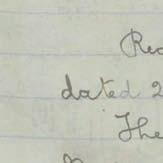 Rec
dated 2
The